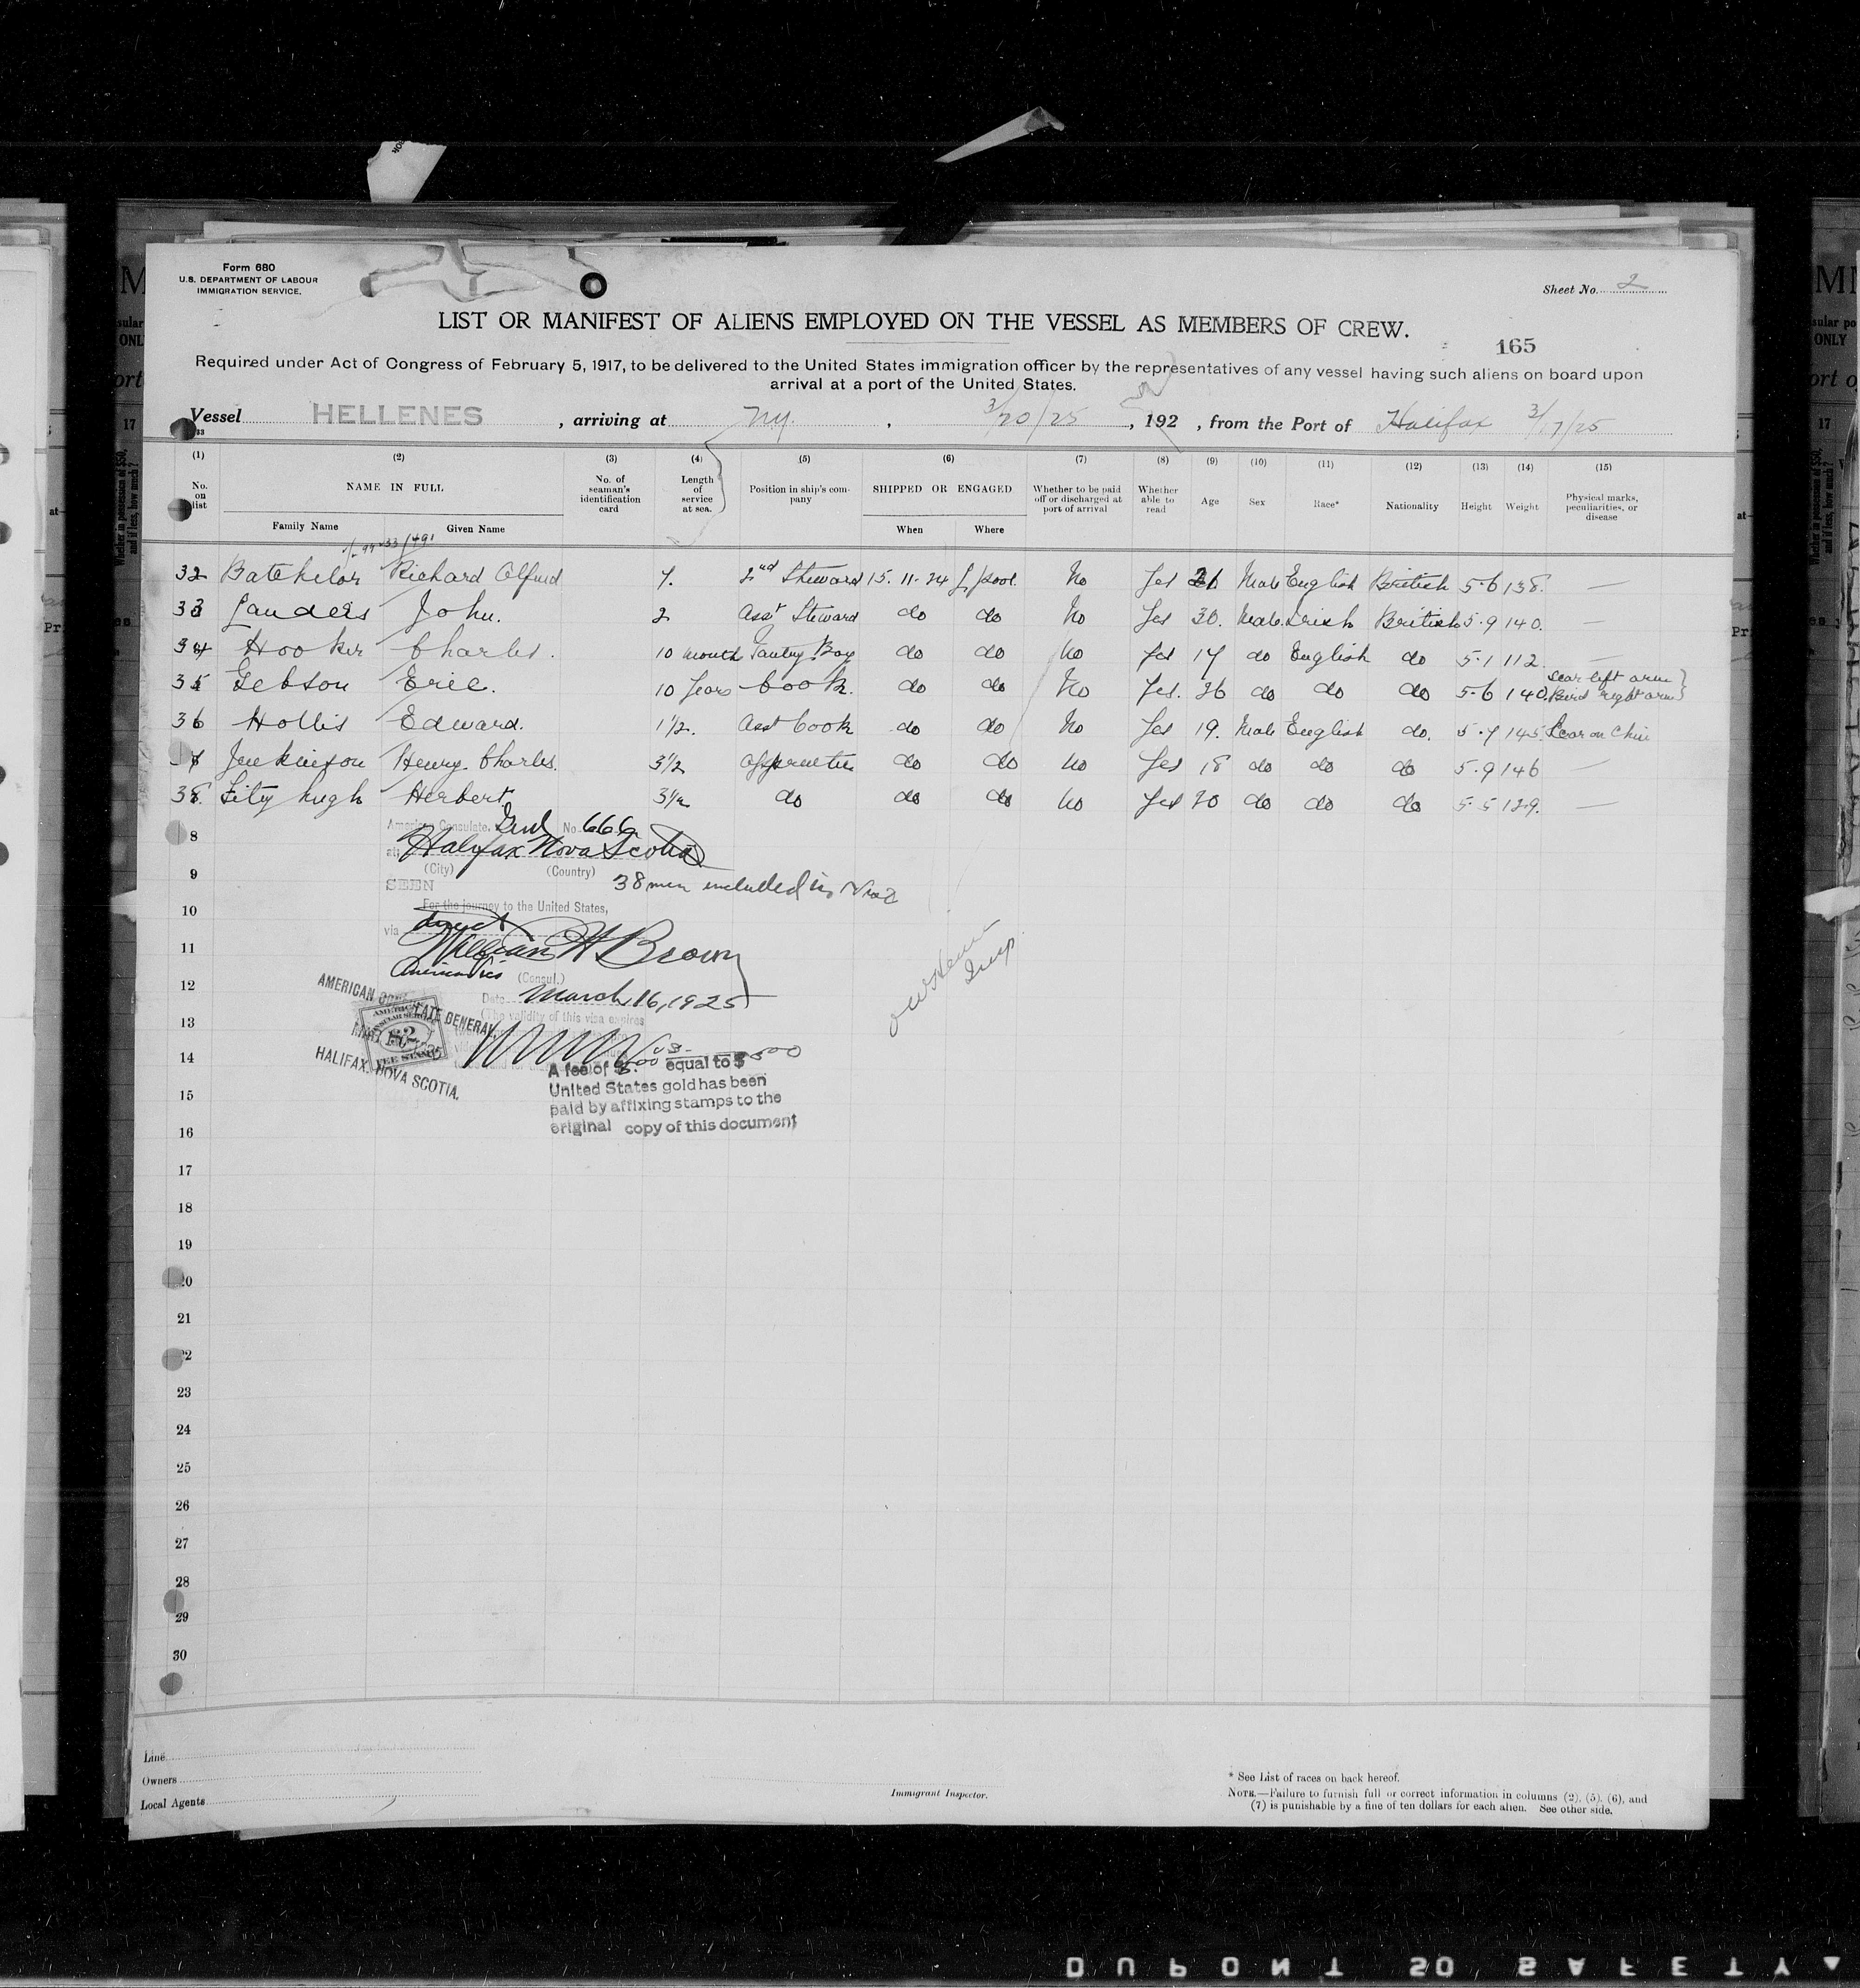 Form 680
U.S. DEPARTMENT OF LABOUR
IMMIGRATION SERVICE.
Sheet No. 2
LIST OR MANIFEST OF ALIENS EMPLOYED ON THE VESSEL AS MEMBERS OF CREW.
165
Required under Act of Congress of February 5, 1917, to be delivered to the United States immigration officer by the representatives of any vessel having such aliens on board upon
arrival at a port of the United States.
Vessel HELLENES, arriving at NY., 3/20/25, 192, from the Port of Halifax 3/17/25
(1) (2) (3) (4) (5) (6) (7) (8) (9) (10) (11) (12) (13) (14) (15)
No. on list
NAME IN FULL
Family Name Given Name
No. of seaman's identification card
Length of service at sea.
Position in ship's company
SHIPPED OR ENGAGED
When Where
Whether to be paid off or discharged at port of arrival
Whether able to read
Age
Sex
Race*
Nationality
Height
Weight
Physical marks, peculiarities, or disease
32 Batchelor Richard Alfred 7. 2nd Steward 15.11.24 L'pool. No Yes 21 Male English British 5-6 138. —
33 Landers John. 2 Asst Steward do do No Yes 30. Male Irish British 5-9 140. —
34 Hooker Charles. 10 month Pantry Boy do do No Yes 17 do English do 5-1 112 —
35 Gebson Eric. 10 Years Cook. do do No Yes. 26 do do do 5-6 140 Scar left arm
Bird right arm
36 Hollis Edward. 1½. Asst Cook do do No Yes 19. Male English do. 5-7 145 Scar on Chin
7 Jenkinson Henry Charles. 3½ Apprentice do do No Yes 18 do do do 5-9 146 —
38. Fitzhugh Herbert 3½ do do do No Yes 20 do do do 5-5 129. —
American Consulate, Genl No. 666
8
at Halifax Nova Scotia
(City) (Country)
9
SEEN
38 men included in Visa
10
For the journey to the United States,
via direct
11
William H Brown
American Vis (Consul.)
12
Date March 16, 1925
AMERICAN CONSULATE GENERAL
(The validity of this visa expires
13
FEE STAMP
HALIFAX, NOVA SCOTIA.
14
A fee of $ equal to $
United States gold has been
15
paid by affixing stamps to the
original copy of this document
16
17
18
19
20
21
22
23
24
25
26
27
28
29
30
Line
Owners
Local Agents
Immigrant Inspector.
* See List of races on back hereof.
NOTE.—Failure to furnish full or correct information in columns (2), (5), (6), and
(7) is punishable by a fine of ten dollars for each alien. See other side.
DUPONT SO SAFETY